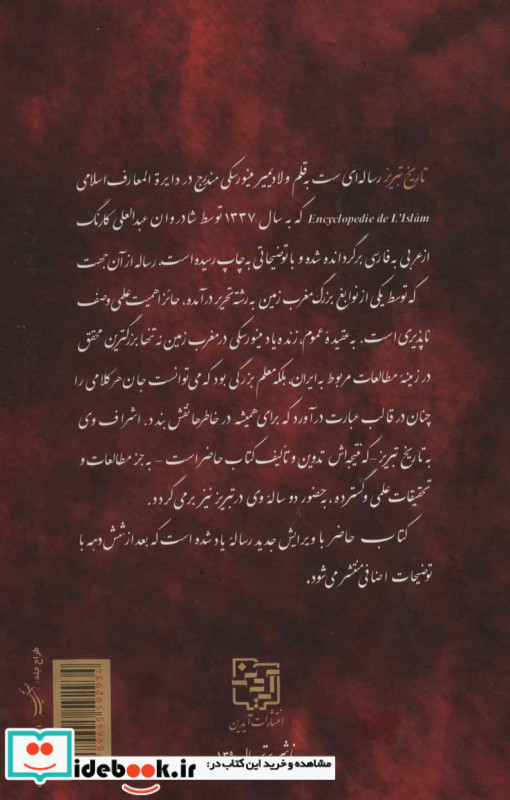 تاریخ تبریز رساله‌ای ست به قلم ولادیمیر مینورسکی مندرج در دایرة المعارف اسلامی
Encyclopedie de L'Islàm که به سال ۱۳۳۷ توسط شادروان عبدالعلی کارنگ
از عربی به فارسی برگردانده شده و با توضیحاتی به چاپ رسیده است. رساله از آن جهت
که توسط یکی از نوابغ بزرگ مغرب زمین به رشته تحریر درآمده، حائز اهمیت علمی وصف
ناپذیری است. به عقیدهٔ عموم، زنده یاد مینورسکی در مغرب زمین نه تنها بزرگترین محقق
در زمینهٔ مطالعات مربوط به ایران، بلکه معلم بزرگی بود که می‌توانست جان هر کلامی را
چنان در قالب عبارت درآورد که برای همیشه در خاطرها نقش بندد. اشراف وی
به تاریخ تبریز -که نتیجه‌اش تدوین و تألیف کتاب حاضر است- به جز مطالعات و
تحقیقات علمی و گسترده، به حضور دو سالهٔ وی در تبریز نیز برمی گردد.
کتاب حاضر با ویرایش جدید رسالهٔ یاد شده است که بعد از شش دهه با
توضیحات اضافی منتشر می شود.
طراح جلد:
انتشارات آیدین
مشاهده و خرید این کتاب در:
idebook.ir